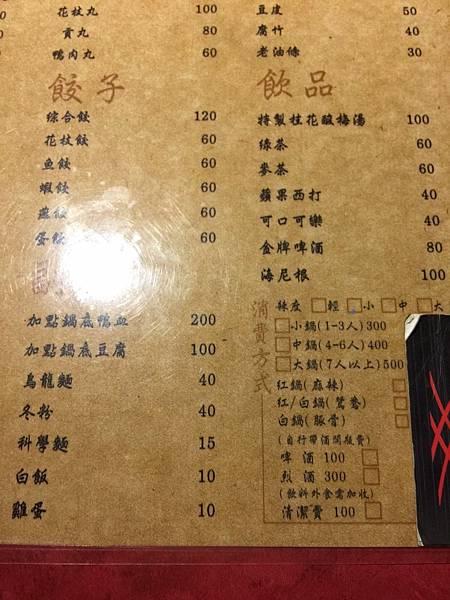 花枝丸 100
貢丸 80
鴨肉丸 60
餃子
綜合餃 120
花枝餃 60
魚餃 60
蝦餃 60
燕餃 60
蛋餃 60
加點鍋底鴨血 200
加點鍋底豆腐 100
烏龍麵 40
冬粉 40
科學麵 15
白飯 10
雞蛋 10
豆皮 50
腐竹 40
老油條 30
飲品
特製桂花酸梅湯 100
綠茶 60
麥茶 60
蘋果西打 40
可口可樂 40
金牌啤酒 80
海尼根 100
消費方式
辣度 □輕 □小 □中 □大
□小鍋(1-3人) 300
□中鍋(4-6人) 400
□大鍋(7人以上) 500
紅鍋(麻辣) □
紅/白鍋(鴛鴦) □
白鍋(豚骨) □
(自行帶酒開瓶費)
啤酒 100 □
烈酒 300 □
(飲料外食需加收)
清潔費 100 □